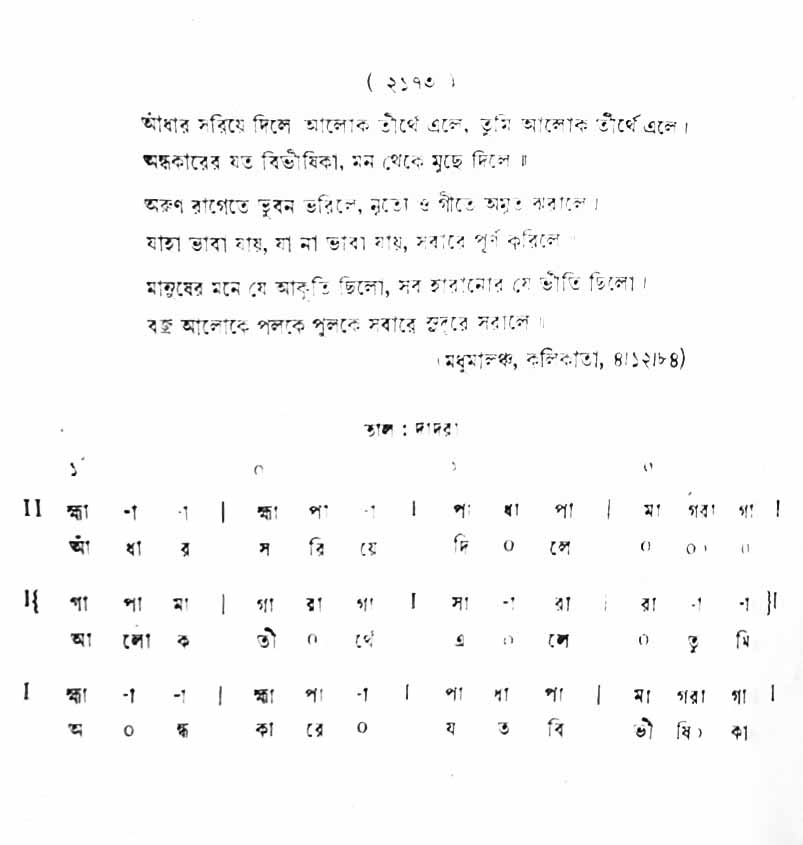 ( ২১৭৩ )
আঁধার সরিয়ে দিলে আলোক তীর্থে এলে, তুমি আলোক তীর্থে এলে।
অন্ধকারের যত বিভীষিকা, মন থেকে মুছে দিলে॥
অরুণ রাগেতে ভুবন ভরিলে, নৃত্যে ও গীতে অমৃত ঝরালে।
যাহা ভাবা যায়, যা না ভাবা যায়, সবারে পূর্ণ করিলে॥
মানুষের মনে যে আকূতি ছিলো, সব হারানোর যে ভীতি ছিলো।
বজ্র আলোকে পলকে পুলকে সবারে সুদূরে সরালে॥
(মধুমালঞ্চ, কলিকাতা, ৪/১২/৮৪)
তাল : দাদরা
১ ০ ১ ০
II হ্মা -া -া | হ্মা পা -া I পা ধা পা | মা গরা গা I
আঁ ধা র স রি য়ে দি ০ লে ০ ০০ ০
I{ গা পা মা | গা রা গা I সা -া রা | রা -া -া }I
আ লো ক তী ০ র্থে এ ০ লে ০ তু মি
I হ্মা -া -া | হ্মা পা -া I পা ধা পা | মা গরা গা I
অ ০ ন্ধ কা রে ০ য ত বি ভী ষি০ কা